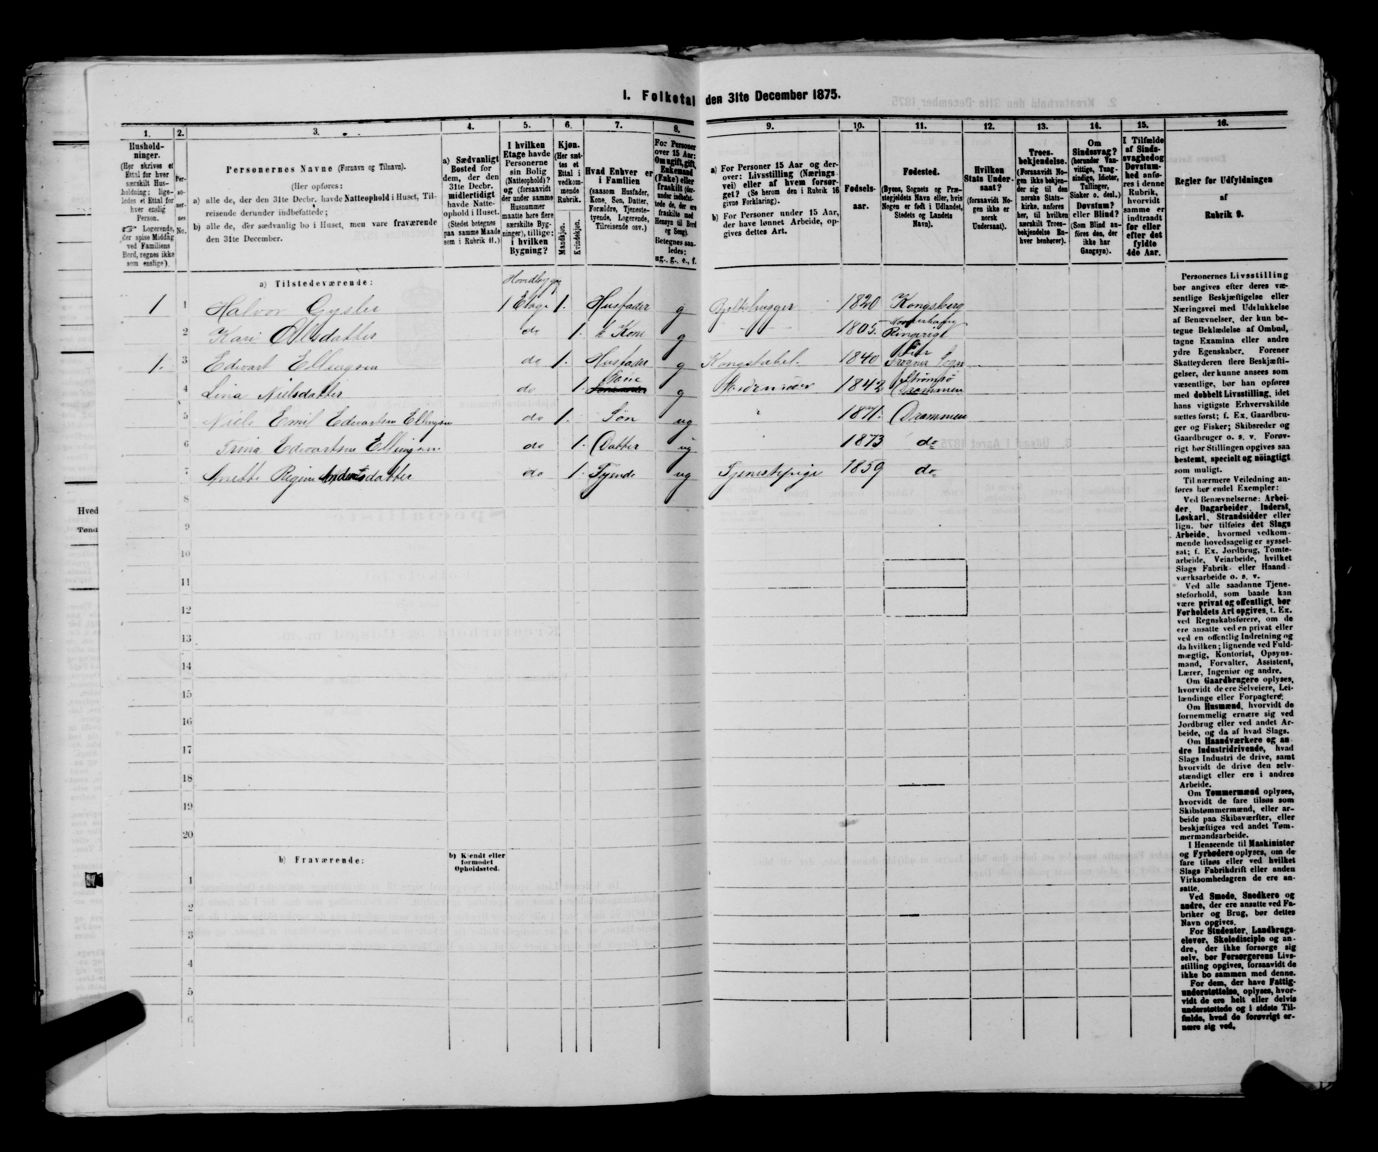 I. Folketal den 31te December 1875.
1. 2. 3. 4. 5. 6. 7. 8. 9. 10. 11. 12. 13. 14. 15. 16.
Hushold-
ninger.
(Her skrives et
Ettal for hver
særskilt Hus-
holdning; lige-
ledes et Ettal for
hver enslig
Person.
☞ Logerende,
der spise Middag
ved Familiens
Bord, regnes ikke
som enslige).
Per-
so-
ner-
nes
No.
Personernes Navne (Fornavn og Tilnavn).
(Her opføres:
a) alle de, der den 31te Decbr. havde Natteophold i Huset, Til-
reisende derunder indbefattede;
b) alle de, der sædvanlig bo i Huset, men vare fraværende
den 31te December.
a) Sædvanligt
Bosted for
dem, der den
31te Decbr.
midlertidigt
havde Natte-
ophold i Huset.
(Stedet betegnes
paa samme Maade
som i Rubrik 11.)
I hvilken
Etage havde
Personerne
sin Bolig
(Natteophold)?
og (forsaavidt
der under samme
Husnummer
maatte høre flere
særskilte Byg-
ninger), tillige:
i hvilken
Bygning?
Kjøn.
(Her sæt-
tes et
Ettal i
vedkom-
mende
Rubrik.
Mandkjøn.
Kvindekjøn.
Hvad Enhver er
i Familien
(saasom Husfader,
Kone, Søn, Datter,
Forældre, Tjeneste-
tyende, Logerende,
Tilreisende osv.)
For Personer
over 15 Aar:
Om ugift, gift,
Enkemand
(Enke) eller
fraskilt (der-
under indbefat-
tede de, der ere
fraskilte med
Hensyn til Bord
og Seng).
Betegnes saa-
ledes:
ug., g., e., f.
a) For Personer 15 Aar og der-
over: Livsstilling (Nærings-
vei) eller af hvem forsør-
get? (Se herom den i Rubrik 16
givne Forklaring).
b) For Personer under 15 Aar,
der have lønnet Arbeide, op-
gives dettes Art.
Fødsels-
aar.
Fødested.
(Byens, Sognets og Præ-
stegjeldets Navn eller, hvis
Nogen er født i Udlandet,
Stedets og Landets
Navn).
Hvilken
Stats Under-
saat?
(forsaavidt No-
gen ikke er
norsk
Undersaat).
Troes-
bekjendelse.
(Forsaavidt No-
gen ikke bekjen-
der sig til den
norske Stats-
kirke, anføres
her, til hvilken
særskilt Troes-
bekjendelse En-
hver henhører).
Om
Sindssvag?
(herunder Van-
vittige, Tung-
sindige, Idioter,
Tullinger,
Sinker o. desl.)
Døvstum?
eller Blind?
(Som Blind an-
føres den, der
ikke har
Gangsyn).
I Tilfælde
af Sinds-
svaghed og
Døvstum-
hed anfø-
res i denne
Rubrik,
hvorvidt
samme er
indtraadt
før eller
efter det
fyldte
4de Aar.
Regler for Udfyldningen
af
Rubrik 9.
a) Tilstedeværende:
Hovedbygn
1 1 Halvor 1 Etage 1. Husfader g 1820 Kongsberg
2 Kari Olsdatter do 1. Kone g 1805.
1. 3 Edvart Ellingsen do 1. Husfader g Konstabel 1840 Sogn
4 Lina Nielsdatter do 1. g 1842 Strømsø Drammen
5 Niels Emil Edvartsen Ellingsen do 1. Søn ug 1871. Drammen
6 Trina Edvartsen Ellingsen do 1. Datter ug 1873 do
7 Anette Regine Andersdatter do 1. Tjende ug Tjenestepige 1859 do
8
9
10
11
12
13
14
15
16
17
18
19
20
b) Fraværende:
b) Kjendt eller
formodet
Opholdssted.
1
2
3
4
5
6
Personernes Livsstilling
bør angives efter deres væ-
sentlige Beskjæftigelse eller
Næringsvei med Udelukkelse
af Benævnelser, der kun be-
tegne Beklædelse af Ombud,
tagne Examina eller andre
ydre Egenskaber. Forener
Skatteyderen flere Beskjæfti-
gelser, der kunne ansees som
væsentlige, bør han opføres
med dobbelt Livsstilling, idet
hans vigtigste Erhvervskilde
sættes først; f. Ex. Gaardbru-
ger og Fisker; Skibsreder og
Gaardbruger o. s. v. Forøv-
rigt bør Stillingen opgives saa
bestemt, specielt og nøiagtigt
som muligt.
Til nærmere Veiledning an-
føres her endel Exempler:
Ved Benævnelserne: Arbei-
der, Dagarbeider, Inderst,
Løskarl, Strandsidder eller
lign. bør tilføies det Slags
Arbeide, hvormed vedkom-
mende hovedsagelig er syssel-
sat; f. Ex. Jordbrug, Tomte-
arbeide, Veiarbeide, hvilket
Slags Fabrik- eller Haand-
værksarbeide o. s. v.
Ved alle saadanne Tjene-
steforhold, som baade kan
være privat og offentligt, bør
Forholdets Art opgives, t. Ex.
ved Regnskabsførere, om de
ere ansatte ved en privat eller
ved en offentlig Indretning og
da hvilken; lignende ved Fuld-
mægtig, Kontorist, Opsyns-
mand, Forvalter, Assistent,
Lærer, Ingeniør og andre.
Om Gaardbrugere oplyses,
hvorvidt de ere Selveiere, Lei-
lændinge eller Forpagtere.
Om Husmænd, hvorvidt de
fornemmelig ernære sig ved
Jordbrug eller ved andet Ar-
beide, og da af hvad Slags.
Om Haandværkere og an-
dre Industridrivende, hvad
Slags Industri de drive, samt
hvorvidt de drive den selv-
stændigt eller ere i andres
Arbeide.
Om Tømmermænd oplyses,
hvorvidt de fare tilsøs som
Skibstømmermænd, eller ar-
beide paa Skibsværfter, eller
beskjæftiges ved andet Tøm-
mermandsarbeide.
I Henseende til Maskinister
og Fyrbødere oplyses, om de
fare tilsøs eller ved hvilket
Slags Fabrikdrift eller anden
Virksomhedsgren de ere an-
satte.
Ved Smede, Snedkere og
andre, der ere ansatte ved Fa-
briker og Brug, bør dettes
Navn opgives.
For Studenter, Landbrugs-
elever, Skoledisciple og an-
dre, der ikke forsørge sig
selv, bør Forsørgerens Livs-
stilling opgives, forsaavidt de
ikke bo sammen med denne.
For dem, der have Fattig-
understøttelse, oplyses, hvor-
vidt de ere helt eller delvis
understøttede og i sidste Til-
fælde, hvad de forøvrigt er-
nære sig ved.
Hved
Tønd